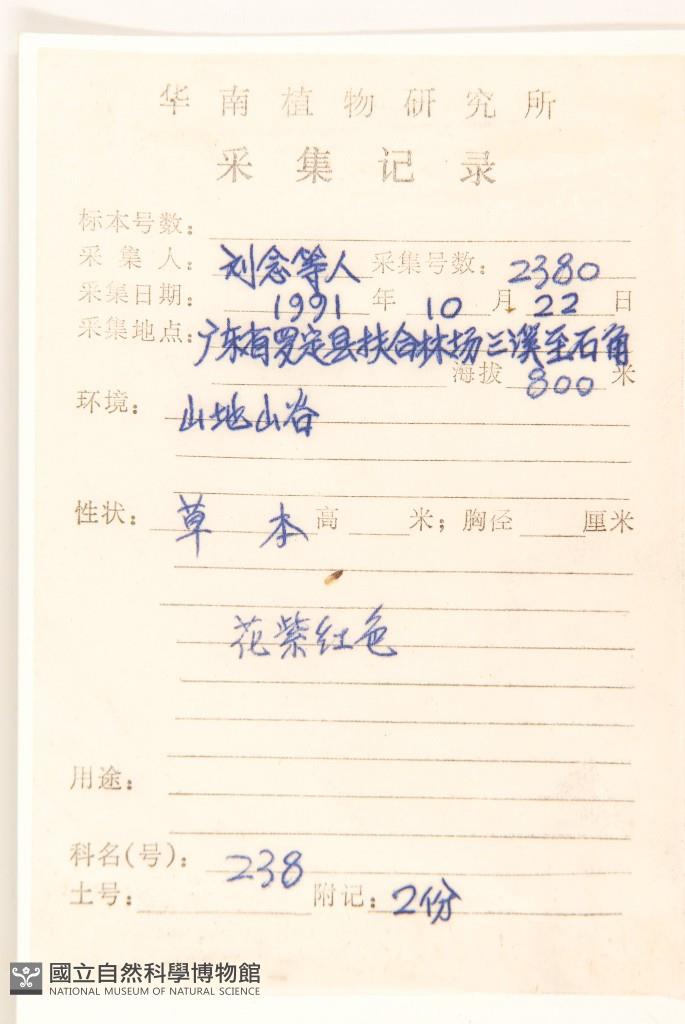 华南植物研究所
采集记录
标本号数：
采集人：刘念等人 采集号数：2380
采集日期：1991年10月22日
采集地点：广东省罗定县扶合林场三溪至石角
海拔800米
环境：山地山谷
性状：草本 高 米；胸径 厘米
花紫红色
用途：
科名(号)：238
土号： 附记：2份
國立自然科學博物館
NATIONAL MUSEUM OF NATURAL SCIENCE